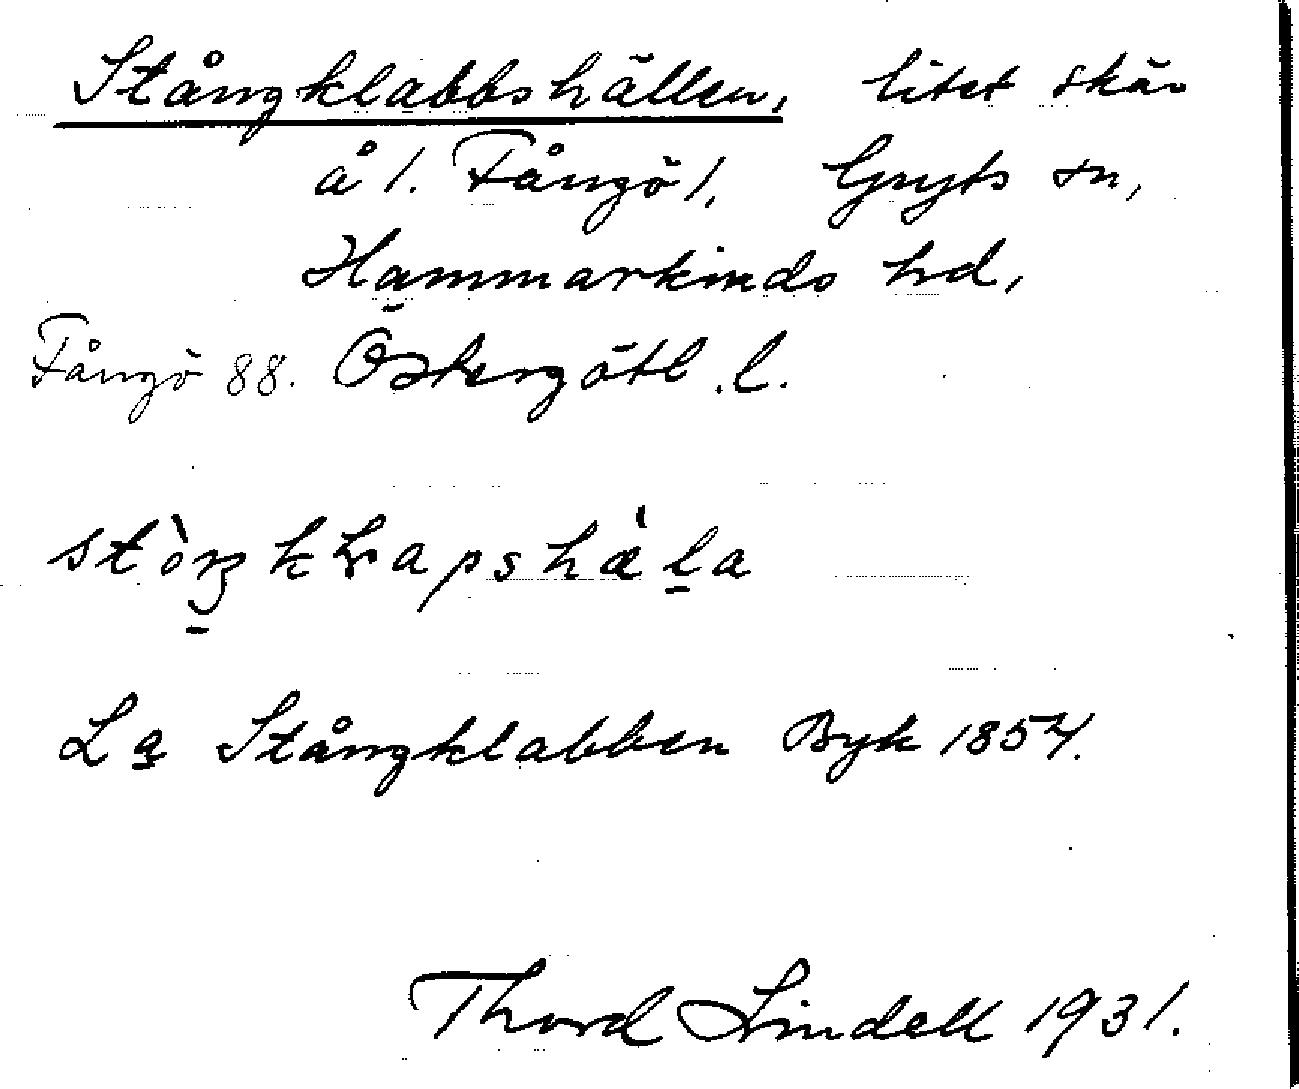 Stångklabbshällen, litet skär
å l. Fångö l. Gryts sn,
Hammarkinds hd,
Fångö 88. Östergötl. l.
stòŋkḷapshæ̀la
La Stångklabben Byk 1857.
Thord Lindell 1931.